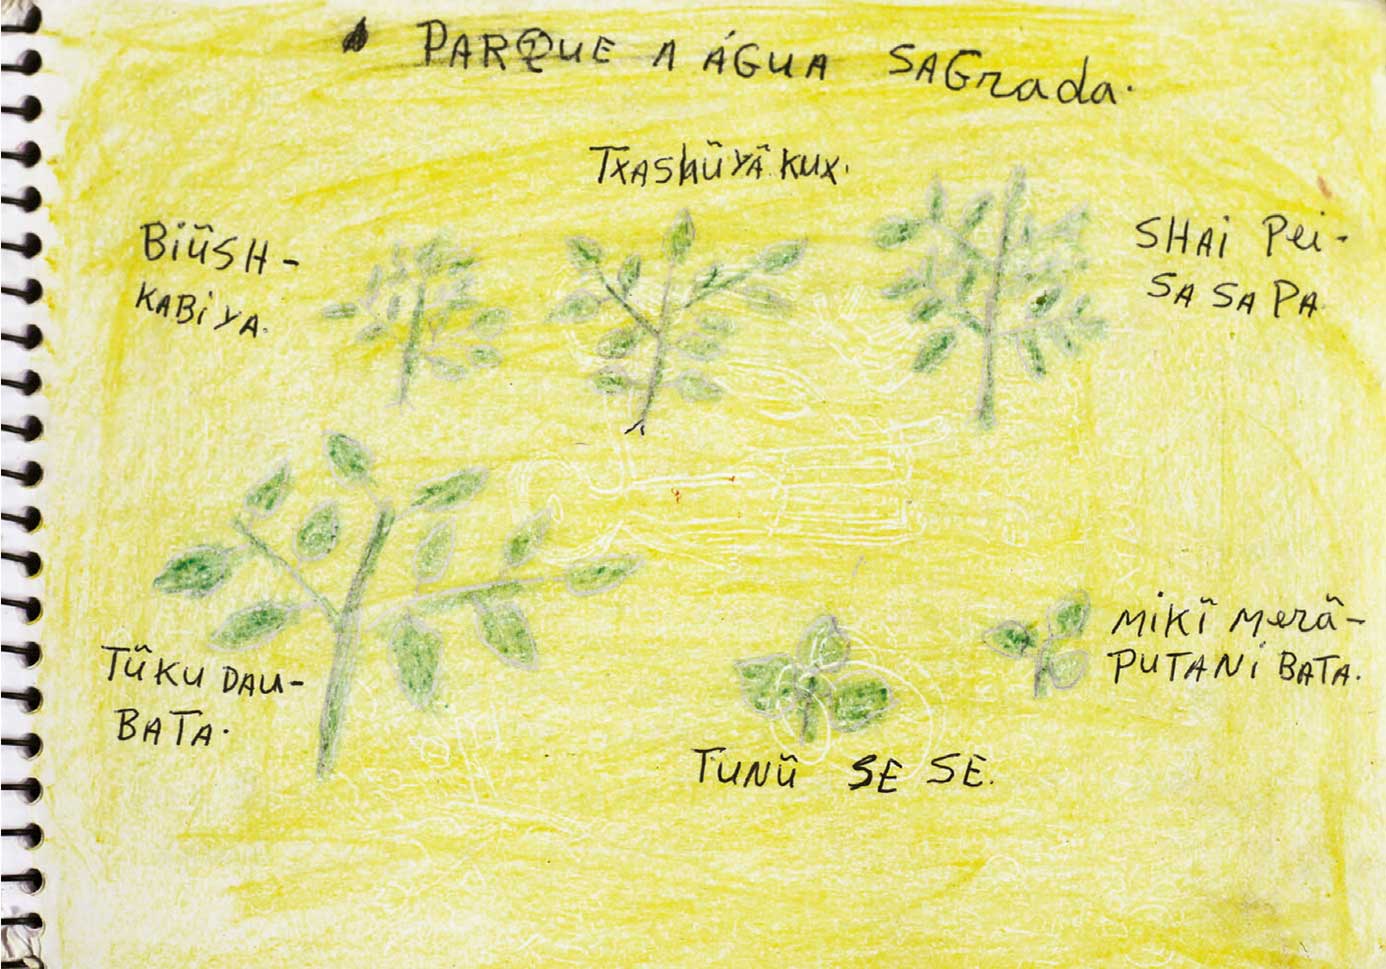 PARQUE A ÁGUA SAGrada.
TXASHŨYÃ KUX.
BiŨSH-
KABiYA.
SHAi Pei-
SA SA PA
TŨKU DAU-
BATA.
MiKĨ MerÃ-
PUTANi BATA.
TUNŨ SE SE.